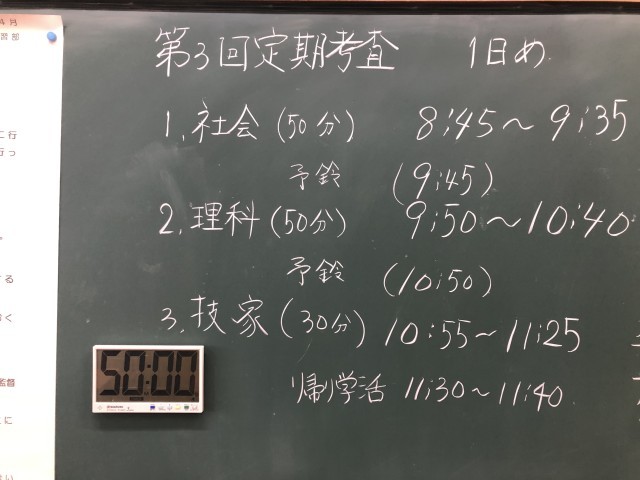 第3回定期考査 1日め
1. 社会 (50分) 8:45〜9:35
予鈴 (9:45)
2. 理科 (50分) 9:50〜10:40
予鈴 (10:50)
3. 技家 (30分) 10:55〜11:25
帰学活 11:30〜11:40
50:00
習部
に行
行っ
する
監督